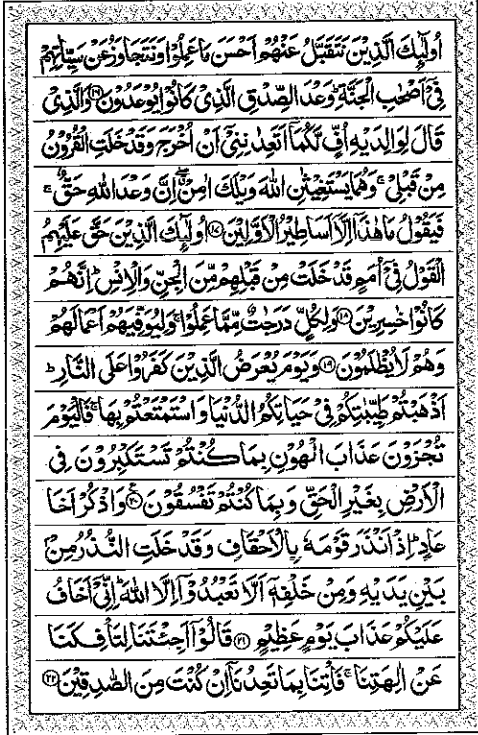 اُولٰٓئِكَ الَّذِيْنَ نَتَقَبَّلُ عَنْهُمْ اَحْسَنَ مَا عَمِلُوْا وَنَتَجَاوَزُ عَنْ سَيِّاٰتِهِمْ
فِيْٓ اَصْحٰبِ الْجَنَّةِ ؕ وَعْدَ الصِّدْقِ الَّذِيْ كَانُوْا يُوْعَدُوْنَ ﴿۱۶﴾ وَالَّذِيْ
قَالَ لِوَالِدَيْهِ اُفٍّ لَّكُمَاۤ اَتَعِدٰنِنِيْٓ اَنْ اُخْرَجَ وَقَدْ خَلَتِ الْقُرُوْنُ
مِنْ قَبْلِيْ ۚ وَهُمَا يَسْتَغِيْثٰنِ اللّٰهَ وَيْلَكَ اٰمِنْ ۖ اِنَّ وَعْدَ اللّٰهِ حَقٌّ ۚ
فَيَقُوْلُ مَا هٰذَآ اِلَّاۤ اَسَاطِيْرُ الْاَوَّلِيْنَ ﴿۱۷﴾ اُولٰٓئِكَ الَّذِيْنَ حَقَّ عَلَيْهِمُ
الْقَوْلُ فِيْٓ اُمَمٍ قَدْ خَلَتْ مِنْ قَبْلِهِمْ مِّنَ الْجِنِّ وَالْاِنْسِ ؕ اِنَّهُمْ
كَانُوْا خٰسِرِيْنَ ﴿۱۸﴾ وَلِكُلٍّ دَرَجٰتٌ مِّمَّا عَمِلُوْا ۚ وَلِيُوَفِّيَهُمْ اَعْمَالَهُمْ
وَهُمْ لَا يُظْلَمُوْنَ ﴿۱۹﴾ وَيَوْمَ يُعْرَضُ الَّذِيْنَ كَفَرُوْا عَلَى النَّارِ ؕ
اَذْهَبْتُمْ طَيِّبٰتِكُمْ فِيْ حَيَاتِكُمُ الدُّنْيَا وَاسْتَمْتَعْتُمْ بِهَا ۚ فَالْيَوْمَ
تُجْزَوْنَ عَذَابَ الْهُوْنِ بِمَا كُنْتُمْ تَسْتَكْبِرُوْنَ فِي
الْاَرْضِ بِغَيْرِ الْحَقِّ وَبِمَا كُنْتُمْ تَفْسُقُوْنَ ﴿۲۰﴾ وَاذْكُرْ اَخَا
عَادٍ ؕ اِذْ اَنْذَرَ قَوْمَهٗ بِالْاَحْقَافِ وَقَدْ خَلَتِ النُّذُرُ مِنْۢ
بَيْنِ يَدَيْهِ وَمِنْ خَلْفِهٖٓ اَلَّا تَعْبُدُوْٓا اِلَّا اللّٰهَ ؕ اِنِّيْٓ اَخَافُ
عَلَيْكُمْ عَذَابَ يَوْمٍ عَظِيْمٍ ﴿۲۱﴾ قَالُوْٓا اَجِئْتَنَا لِتَاْفِكَنَا
عَنْ اٰلِهَتِنَا ۚ فَاْتِنَا بِمَا تَعِدُنَاۤ اِنْ كُنْتَ مِنَ الصّٰدِقِيْنَ ﴿۲۲﴾